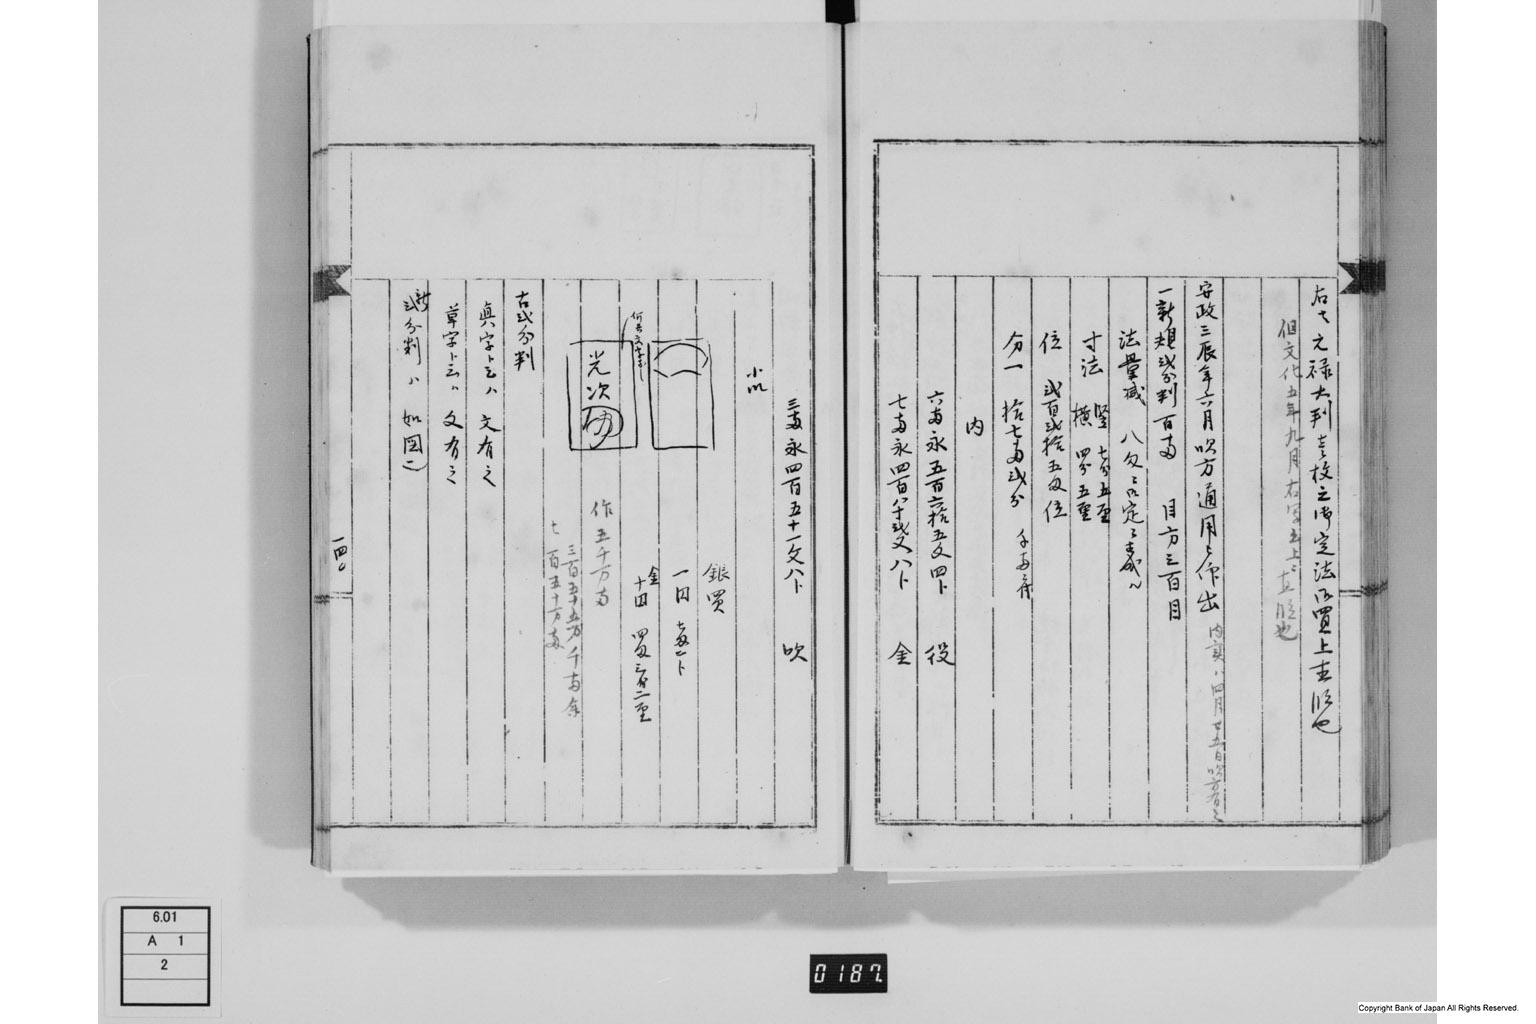 右ハ元禄大判壱枚之御定法御買上直段也
但文化五年九月
安政三辰年六月吹方通用被仰出
四月廿五日吹方有之
一新規弐分判百両　目方三百目
法量減　八匁
寸法　竪　七分五厘
横　四分五厘
位　弐百弐拾五匁位
分一　拾七両弐分　千両ニ付
内
六両永五百六拾五文四卜　役
七両永四百八十弐文八卜　金
三両永四百五十一文八卜　吹
小以
銀買
一匁　七両一卜
金
十匁　四両三分二厘
光次
作　五千万両
三百五十五万　千両余
七百五十万両
古弐分判
眞字ト云ハ　文有之
草字ト云ハ　文有之
新弐分判ハ　如図ニ
一四〇
6.01
A 1
2
0187.
Copyright Bank of Japan All Rights Reserved.